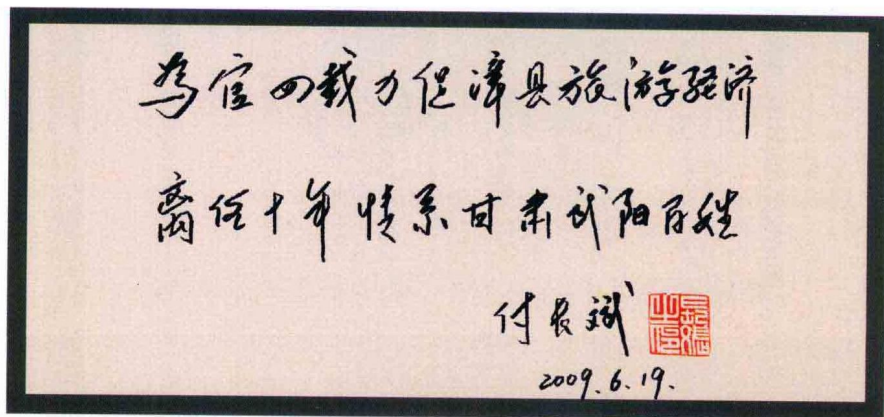 為官四载力促漳县旅游经济
离任十年情系甘肃武阳百姓
付长斌
2009.6.19.